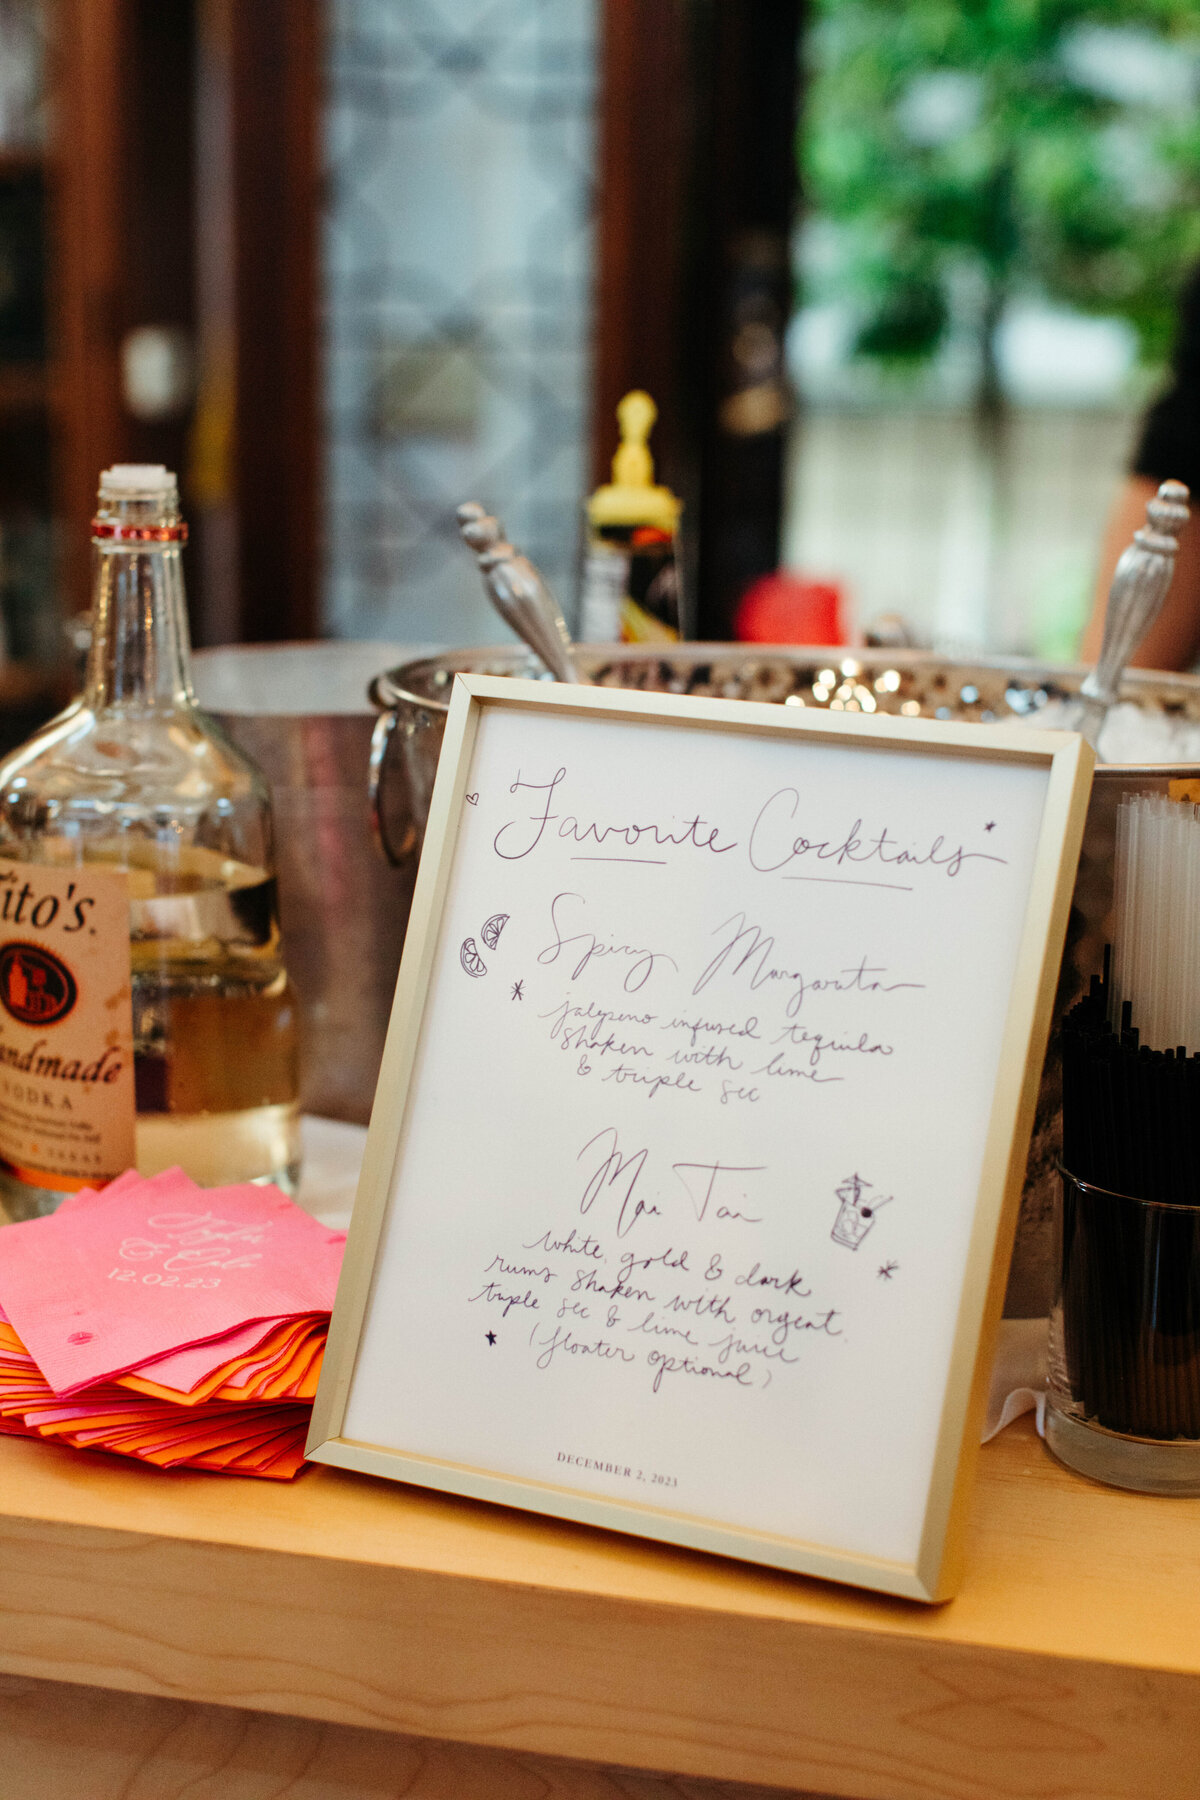 Favorite Cocktails
Spicy Margarita
jalapeno infused tequila
shaken with lime
& triple sec
Mai Tai
white, gold & dark
rums shaken with orgeat,
triple sec & lime juice
(floater optional)
DECEMBER 2, 2023
Tito's.
Handmade
VODKA
&
12.02.23